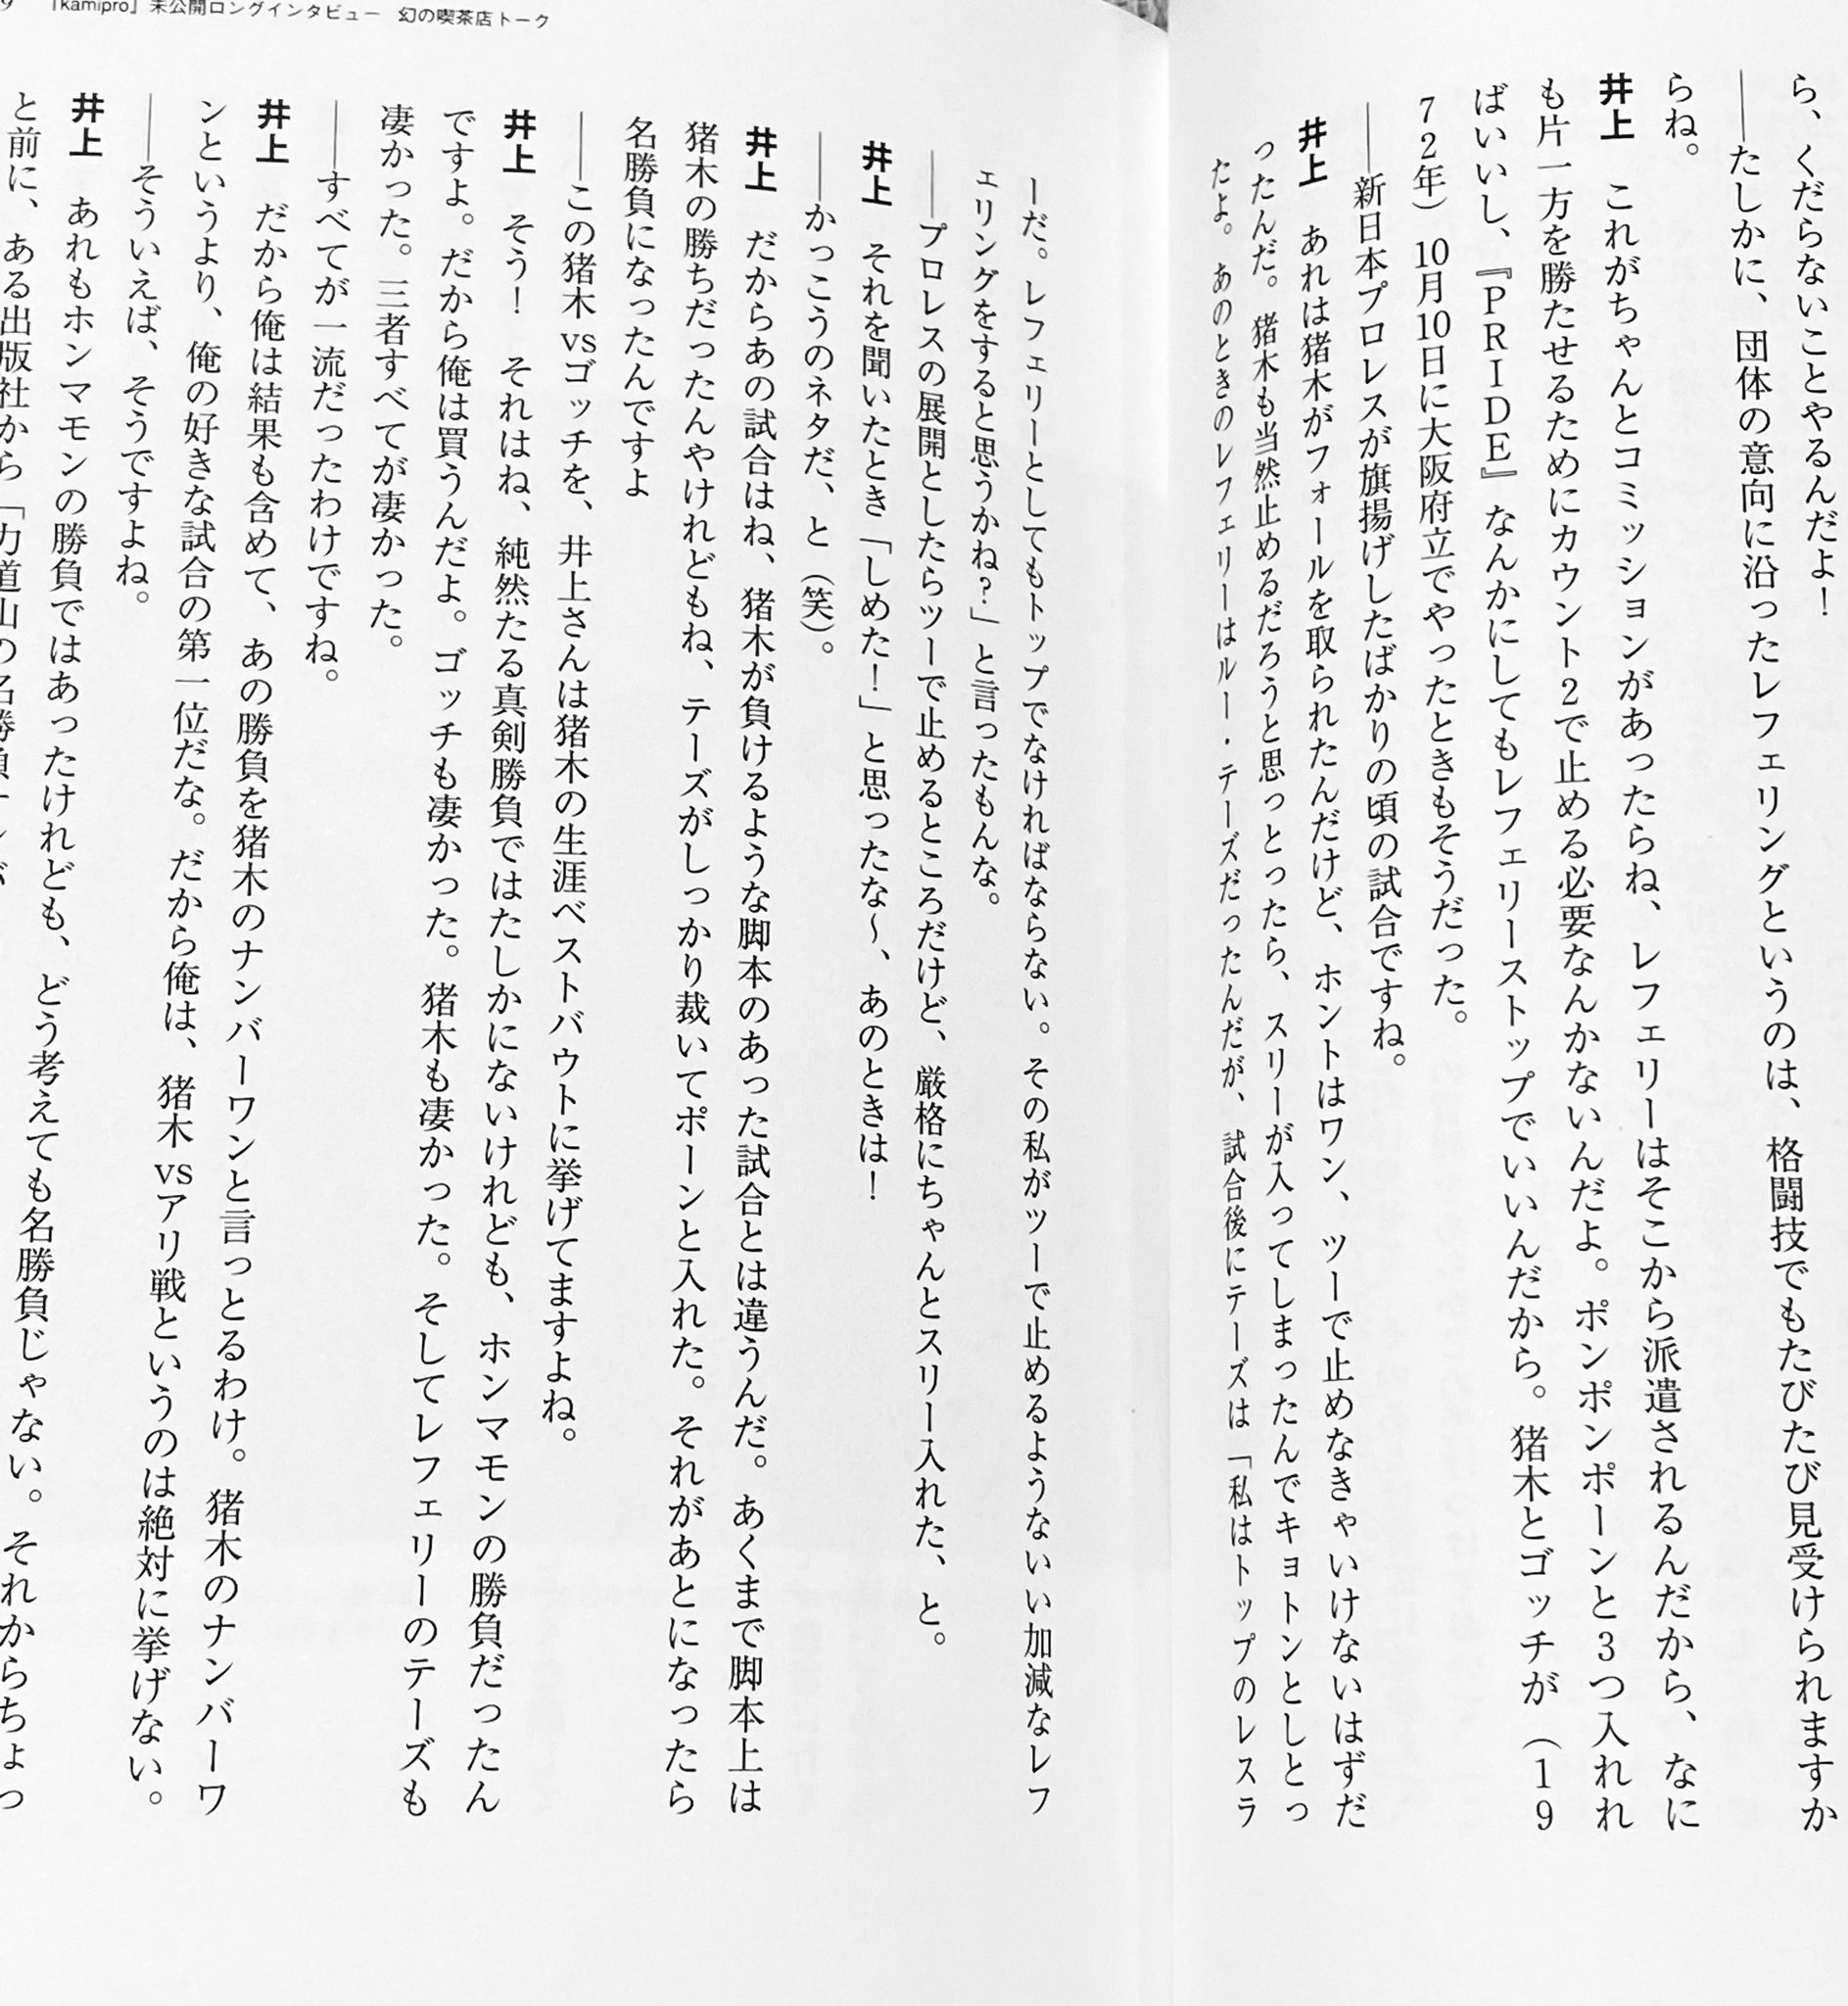 ら、くだらないことやるんだよ！
――たしかに、団体の意向に沿ったレフェリングというのは、格闘技でもたびたび見受けられますか
らね。
井上　これがちゃんとコミッションがあったらね、レフェリーはそこから派遣されるんだから、なに
も片一方を勝たせるためにカウント2で止める必要なんかないんだよ。ポンポンポーンと3つ入れれ
ばいいし、『PRIDE』なんかにしてもレフェリーストップでいいんだから。猪木とゴッチが（19
72年）10月10日に大阪府立でやったときもそうだった。
――新日本プロレスが旗揚げしたばかりの頃の試合ですね。
井上　あれは猪木がフォールを取られたんだけど、ホントはワン、ツーで止めなきゃいけないはずだ
ったんだ。猪木も当然止めるだろうと思っとったら、スリーが入ってしまったんでキョトンとしとっ
たよ。あのときのレフェリーはルー・テーズだったんだが、試合後にテーズは「私はトップのレスラ
ーだ。レフェリーとしてもトップでなければならない。その私がツーで止めるようないい加減なレフ
ェリングをすると思うかね？」と言ったもんな。
――プロレスの展開としたらツーで止めるところだけど、厳格にちゃんとスリー入れた、と。
井上　それを聞いたとき「しめた！」と思ったな〜、あのときは！
――かっこうのネタだ、と（笑）。
井上　だからあの試合はね、猪木が負けるような脚本のあった試合とは違うんだ。あくまで脚本上は
猪木の勝ちだったんやけれどもね、テーズがしっかり裁いてポーンと入れた。それがあとになったら
名勝負になったんですよ
――この猪木vsゴッチを、井上さんは猪木の生涯ベストバウトに挙げてますよね。
井上　そう！　それはね、純然たる真剣勝負ではたしかにないけれども、ホンマモンの勝負だったん
ですよ。だから俺は買うんだよ。ゴッチも凄かった。猪木も凄かった。そしてレフェリーのテーズも
凄かった。三者すべてが凄かった。
――すべてが一流だったわけですね。
井上　だから俺は結果も含めて、あの勝負を猪木のナンバーワンと言っとるわけ。猪木のナンバーワ
ンというより、俺の好きな試合の第一位だな。だから俺は、猪木vsアリ戦というのは絶対に挙げない。
――そういえば、そうですよね。
井上　あれもホンマモンの勝負ではあったけれども、どう考えても名勝負じゃない。それからちょっ
と前に、ある出版社から「力道山の名勝負
『kamipro』未公開ロングインタビュー　幻の喫茶店トーク